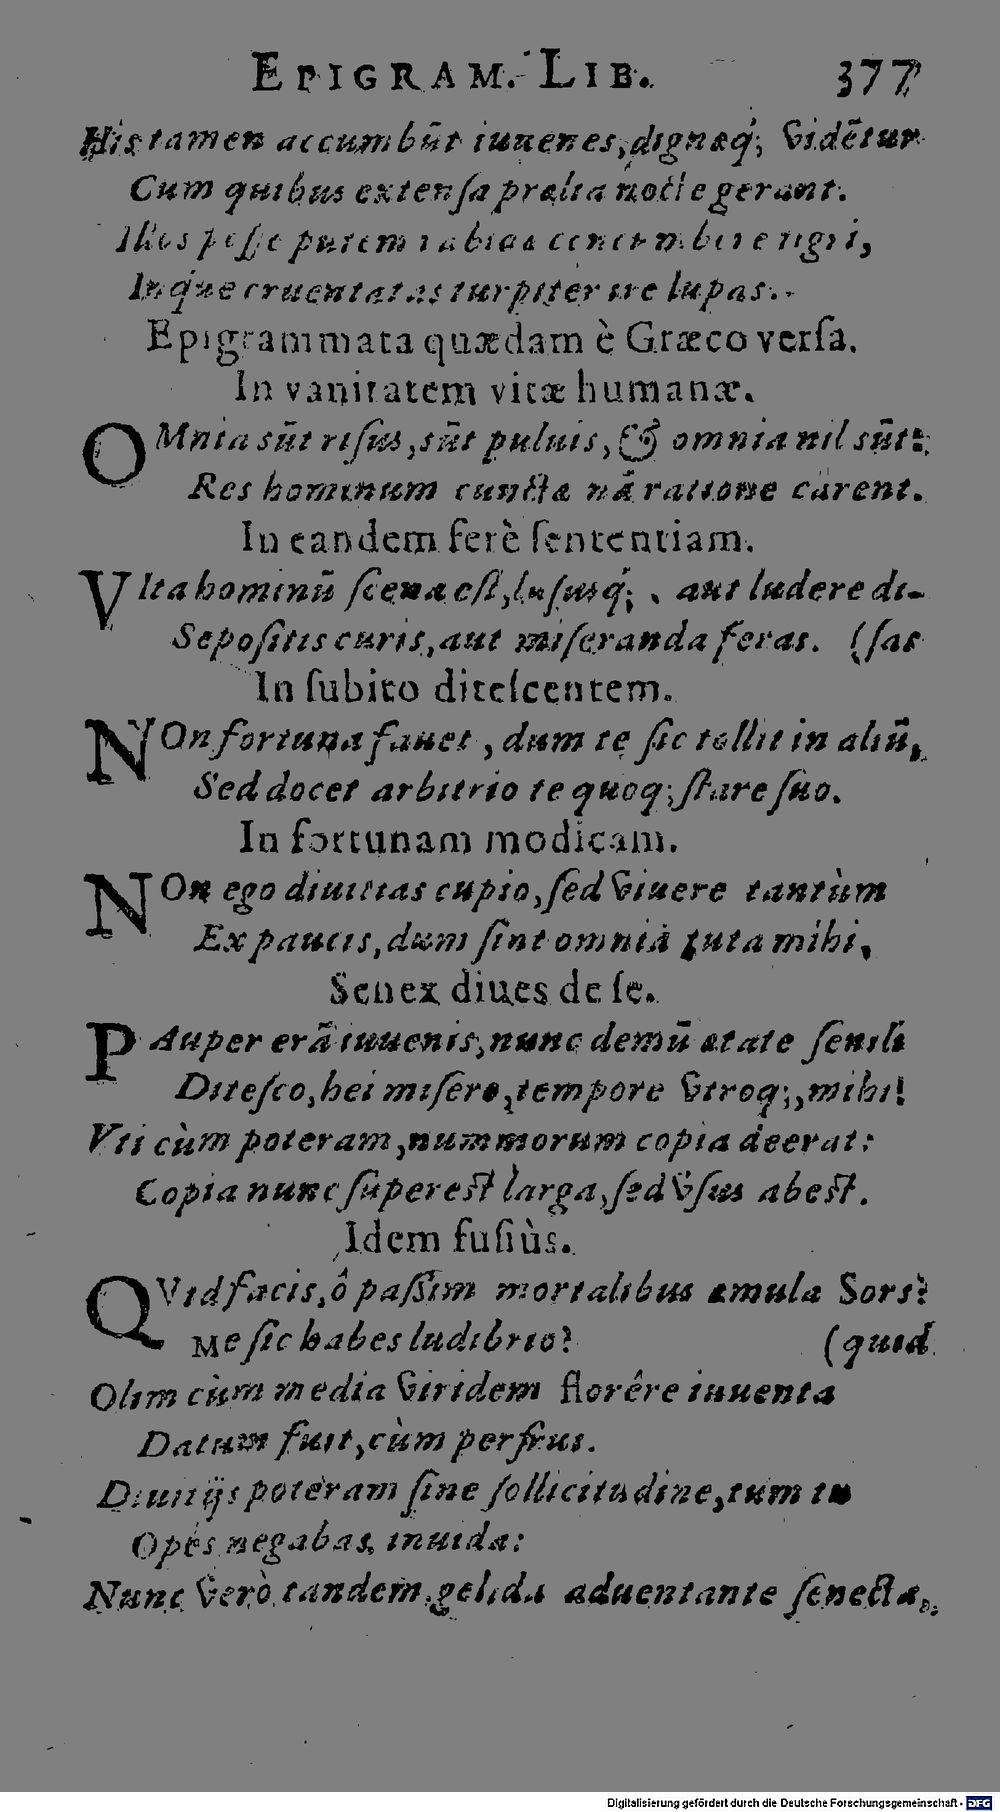 EPIGRAM. LIB. 377
His tamen accumbūt iuuenes, dignæq́; vidētur
Cum quibus extensa prælia nocte gerant.
Illos posse putem rabidæ concumbere tigri,
Inq́ue cruentatas turpiter ire lupas.
Epigrammata quædam è Græco versa.
In vanitatem vitæ humanæ.
OMnia sūt risus, sūt puluis, & omnia nil sūt:
Res hominum cunctæ nā ratione carent.
In eandem ferè sententiam.
VIta hominū scena est, lususq́; aut ludere di-
Sepositis curis, aut miseranda feras. (scas
In subito ditescentem.
NOn fortuna fauet, dum te sic tollit in altū,
Sed docet arbitrio te quoq; stare suo.
In fortunam modicam.
NOn ego diuitias cupio, sed viuere tantùm
Ex paucis, dum sint omnia tuta mihi.
Senex diues de se.
PAuper erā iuuenis, nunc demū ætate senili
Ditesco, hei misero, tempore vtroq;, mihi!
Vti cùm poteram, nummorum copia deerat:
Copia nunc superest larga, sed vsus abest.
Idem fusiùs.
QVid facis, ô passim mortalibus æmula Sors?
Me sic habes ludibrio? (quid
Olim cùm media viridem florêre iuuenta
Datum fuit, cùm perfrui
Diuitijs poteram sine sollicitudine, tum tu
Opes negabas, inuida:
Nunc verò tandem gelida aduentante senecta,
Digitalisierung gefördert durch die Deutsche Forschungsgemeinschaft - DFG